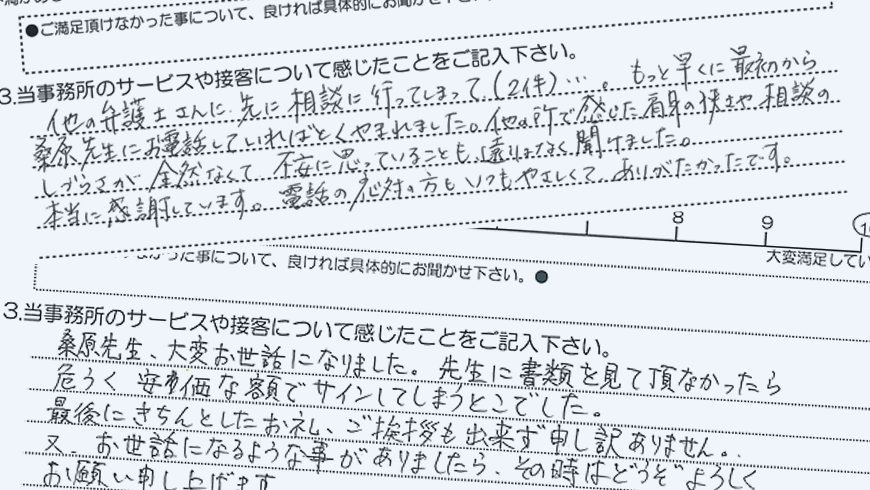 ●ご満足頂けなかった事について、良ければ具体的にお聞かせ下さい
3.当事務所のサービスや接客について感じたことをご記入下さい。
他の弁護士さんに先に相談に行ってしまって(2件)…。もっと早くに最初から
桑原先生にお電話していればとくやまれました。他の所で感じた肩身の狭さや相談の
しづらさが全然なくて、不安に思っていることも遠りょなく聞けました。
本当に感謝しています。電話の応対の方もいつもやさしくて、ありがたかったです。
8 9 10
大変満足してい
なかった事について、良ければ具体的にお聞かせ下さい。●
3.当事務所のサービスや接客について感じたことをご記入下さい。
桑原先生、大変お世話になりました。先生に書類を見て頂なかったら
危うく安価な額でサインしてしまうとこでした。
最後にきちんとしたお礼、ご挨拶も出来ず申し訳ありません。
又、お世話になるような事がありましたら、その時はどうぞよろしく
お願い申し上げます